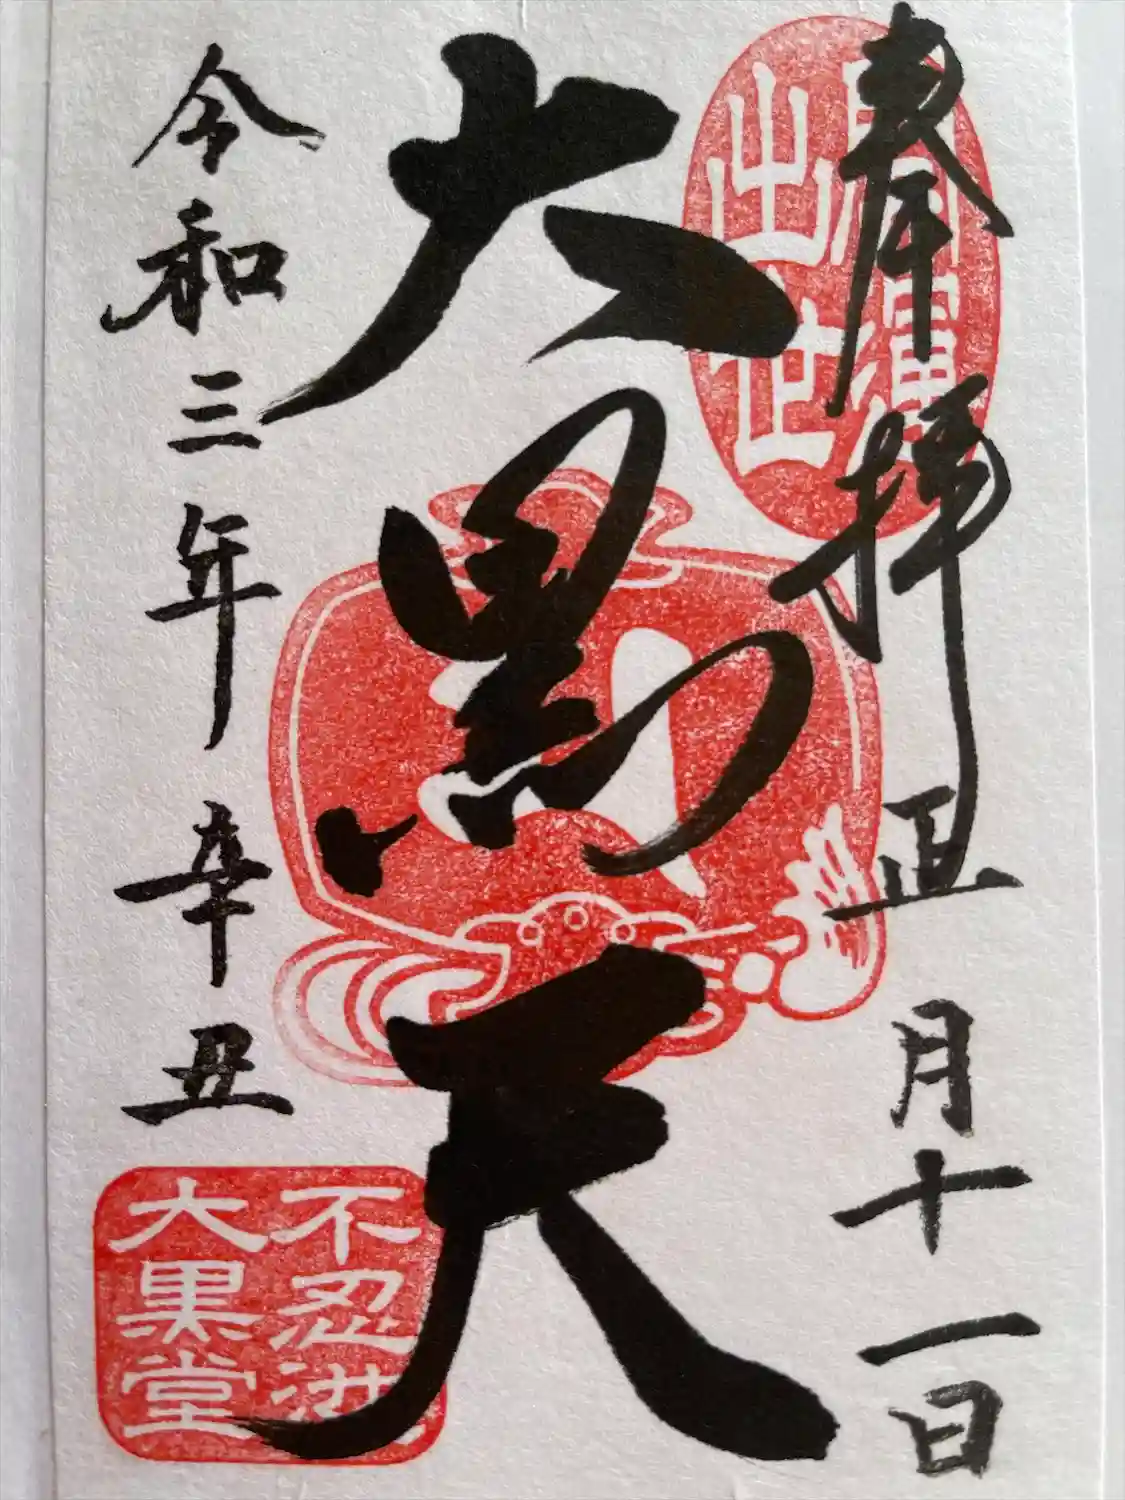 奉拝 正月十一日
開運
出世
大黒天
令和三年 辛丑
不忍池
大黒堂